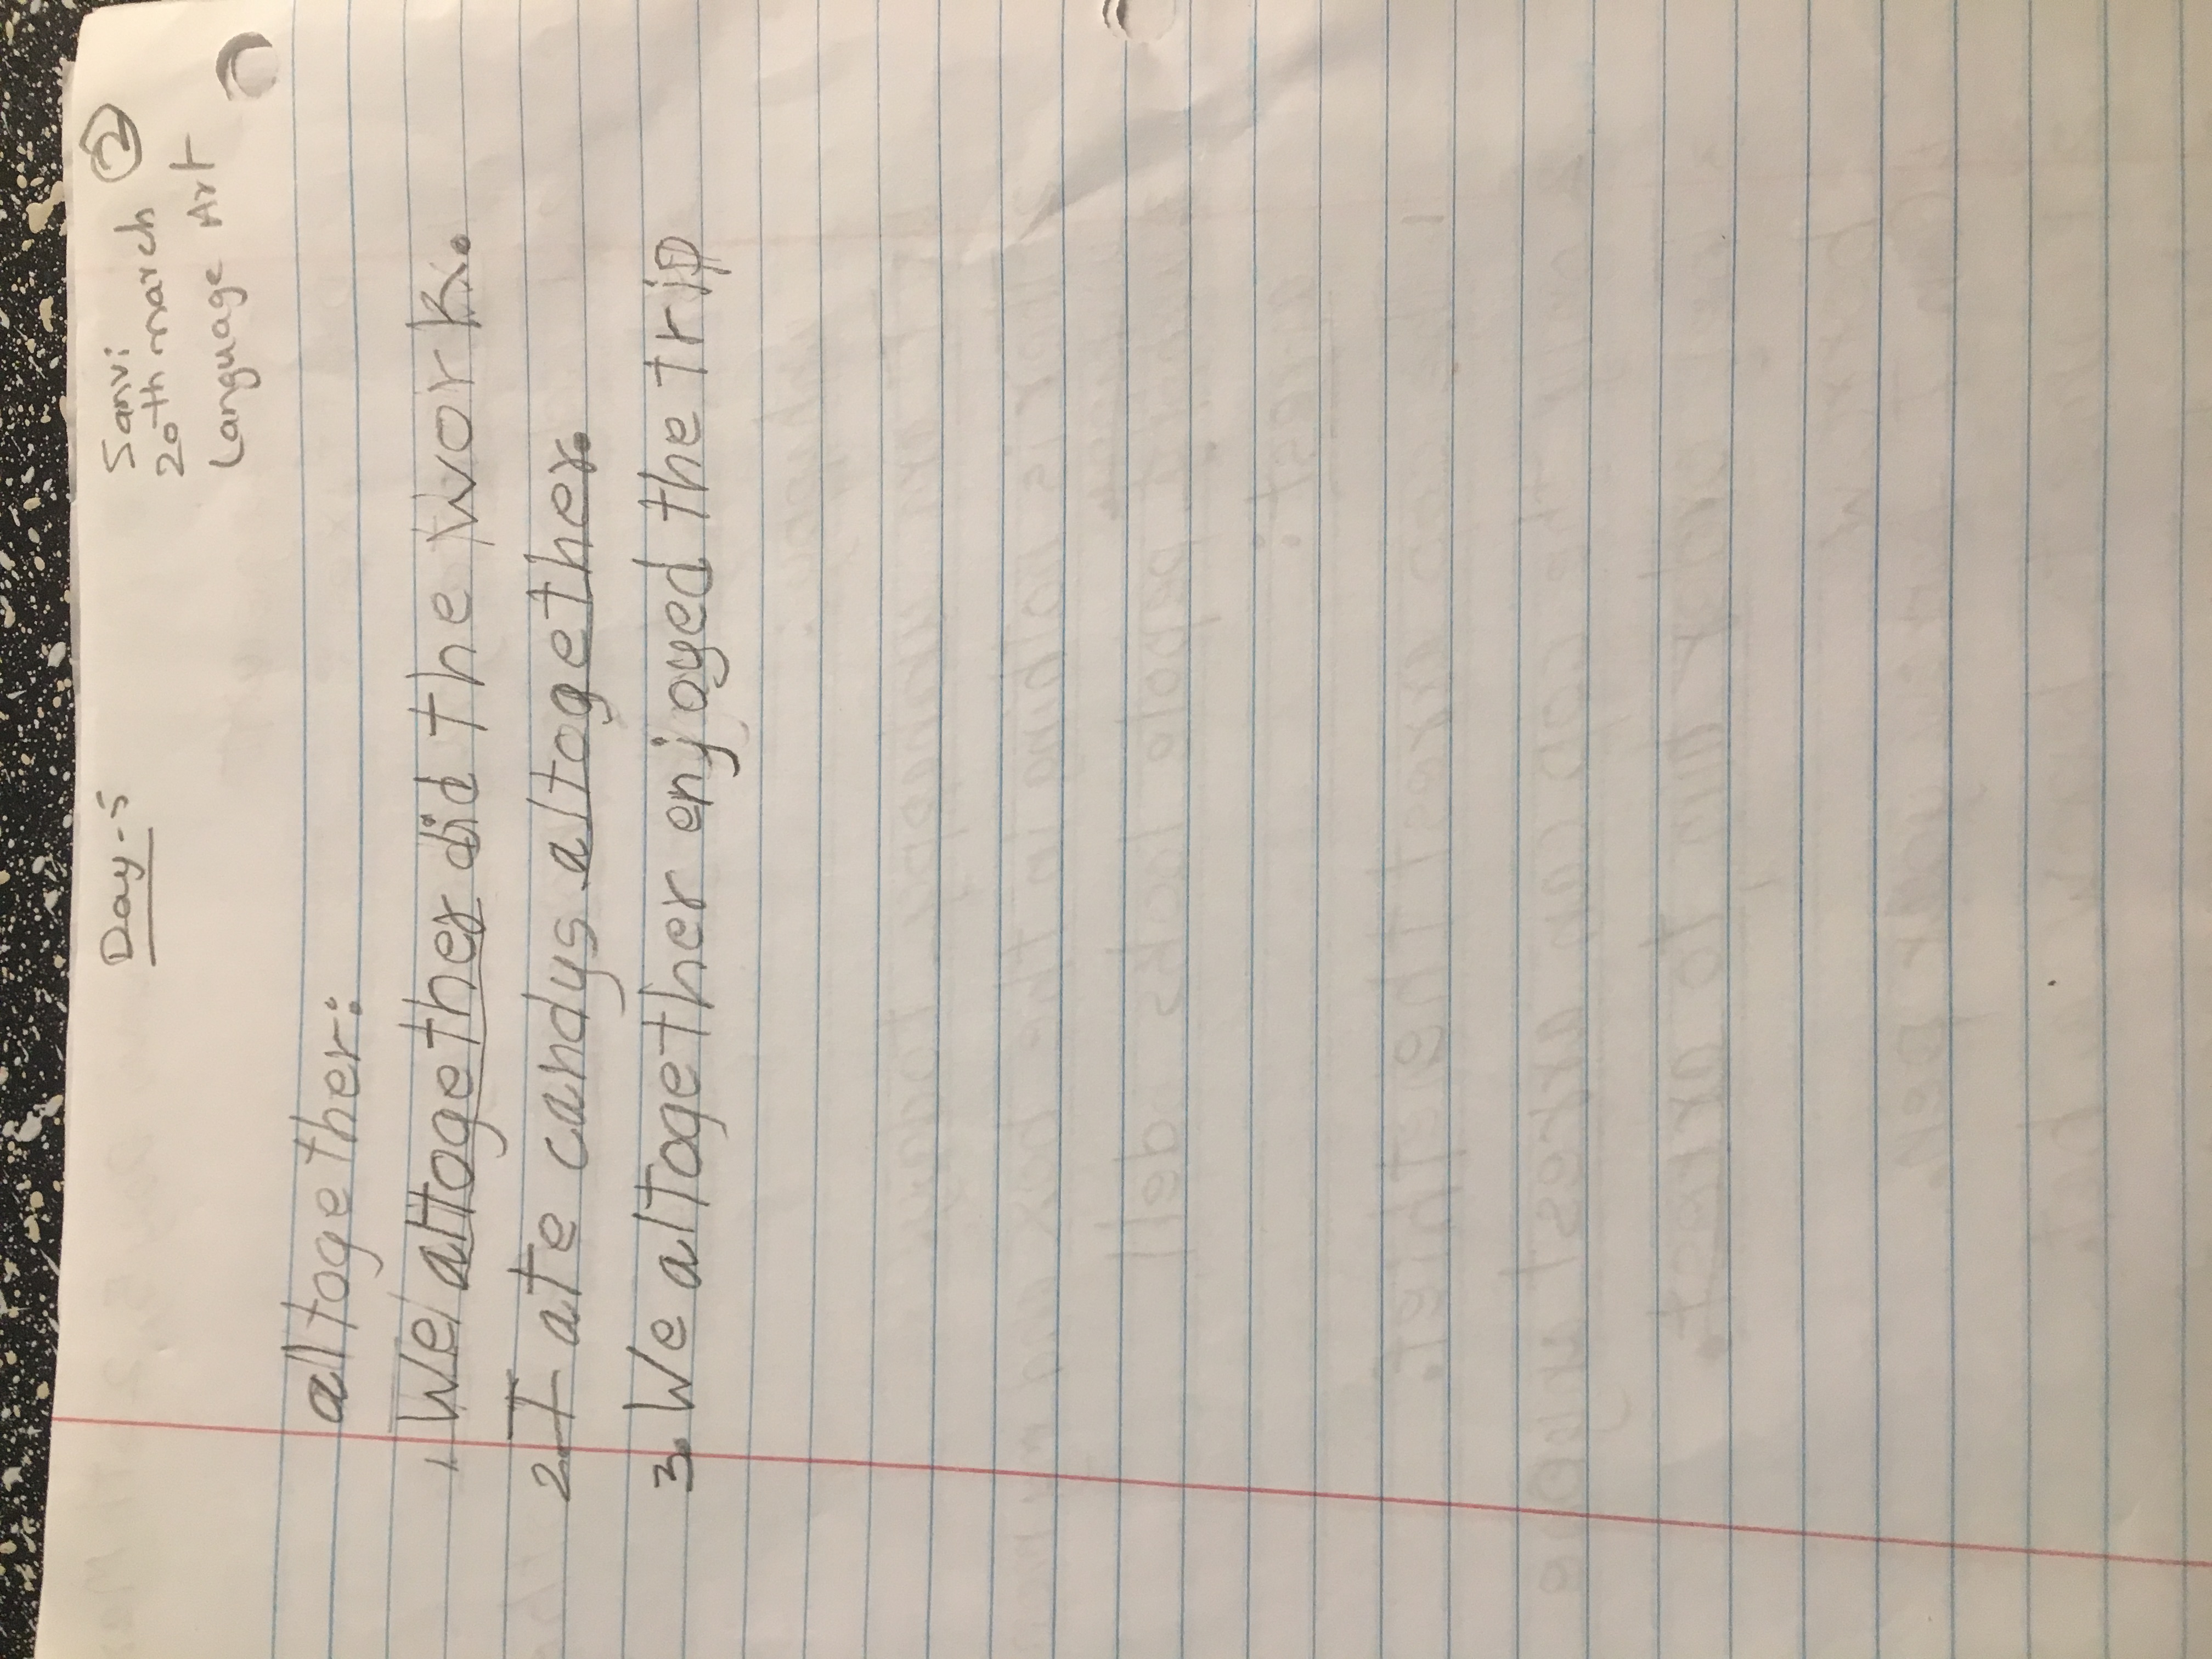 Day-5
Sanvi 2
20th march
Language Art
altogether:
1. We altogether did the work.
2. I ate candys altogether.
3. We altogether enjoyed the trip